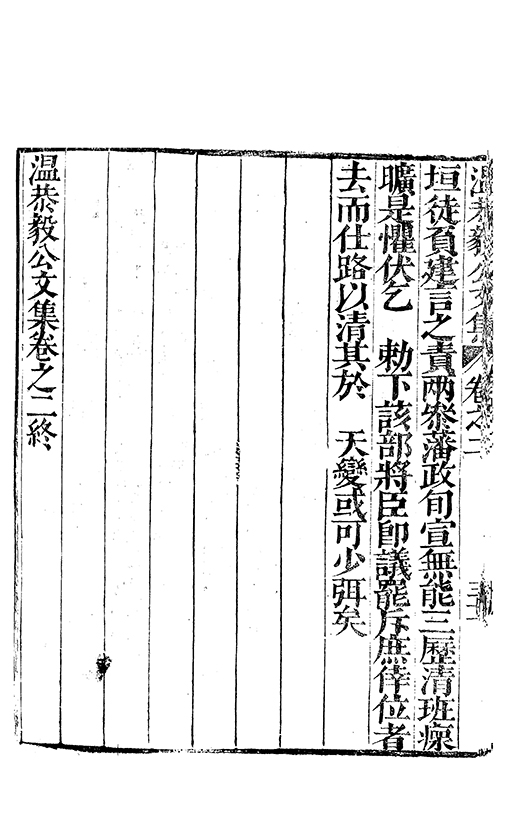 温恭毅公文集 卷之二
垣徒負建言之責兩叅藩政旬宣無能三歷清班瘝
曠是懼伏乞 勅下該部將臣卽議罷斥庶倖位者
去而仕路以清其於 天變或可少弭矣
温恭毅公文集卷之二終